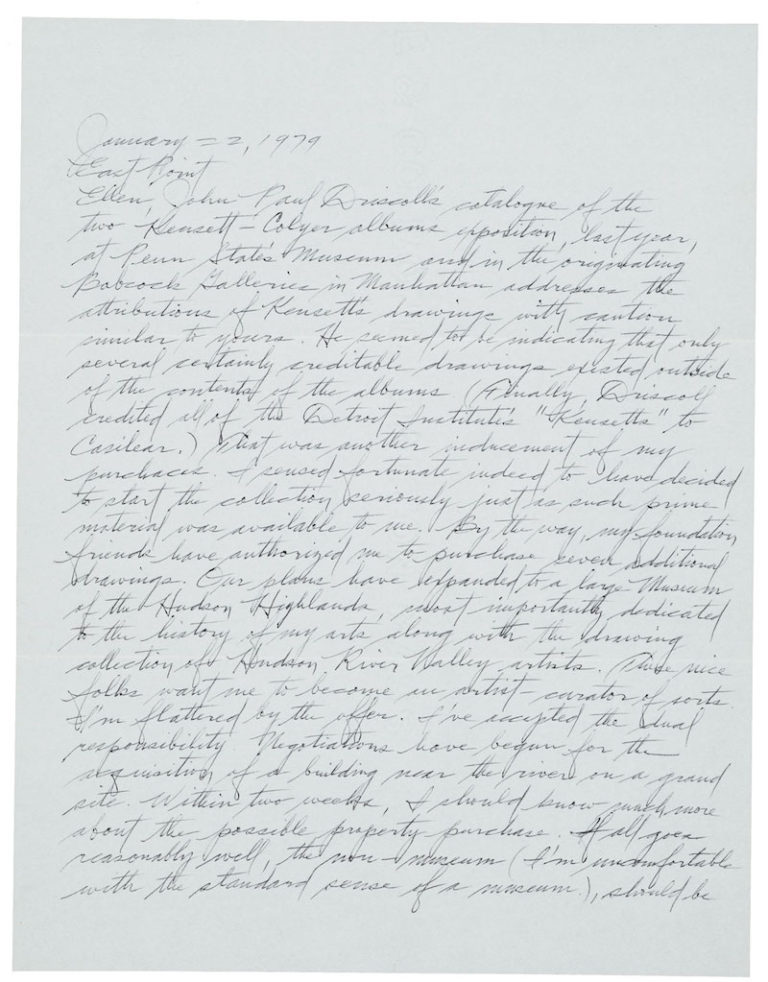 January 22, 1979
East Point
Ellen, John Paul Driscoll's catalogue of the
two Kensett-Colyer albums exposition, last year,
at Penn State's Museum and in the originating
Babcock Galleries in Manhattan addresses the
attributions of Kensett's drawings with caution
similar to yours. He seemed to be indicating that only
several certainly creditable drawings existed outside
of the contents of the albums. (Finally, Driscoll
credited all of the Detroit Institute's "Kensetts" to
Casilear.) That was another inducement of my
purchases. I sensed fortunate indeed to have decided
to start the collection seriously just as such prime
material was available to me. By the way, my foundation
friends have authorized me to purchase seven additional
drawings. Our plans have expanded to a large Museum
of the Hudson Highlands, most importantly dedicated
to the history of my arts along with the drawing
collection of Hudson River Valley artists. These nice
folks want me to become an artist-curator of sorts.
I'm flattered by the offer. I've accepted the dual
responsibility. Negotiations have begun for the
acquisition of a building near the river on a grand
site. Within two weeks, I should know much more
about the possible property purchase. If all goes
reasonably well, the non-museum (I'm uncomfortable
with the standard sense of a museum.), should be